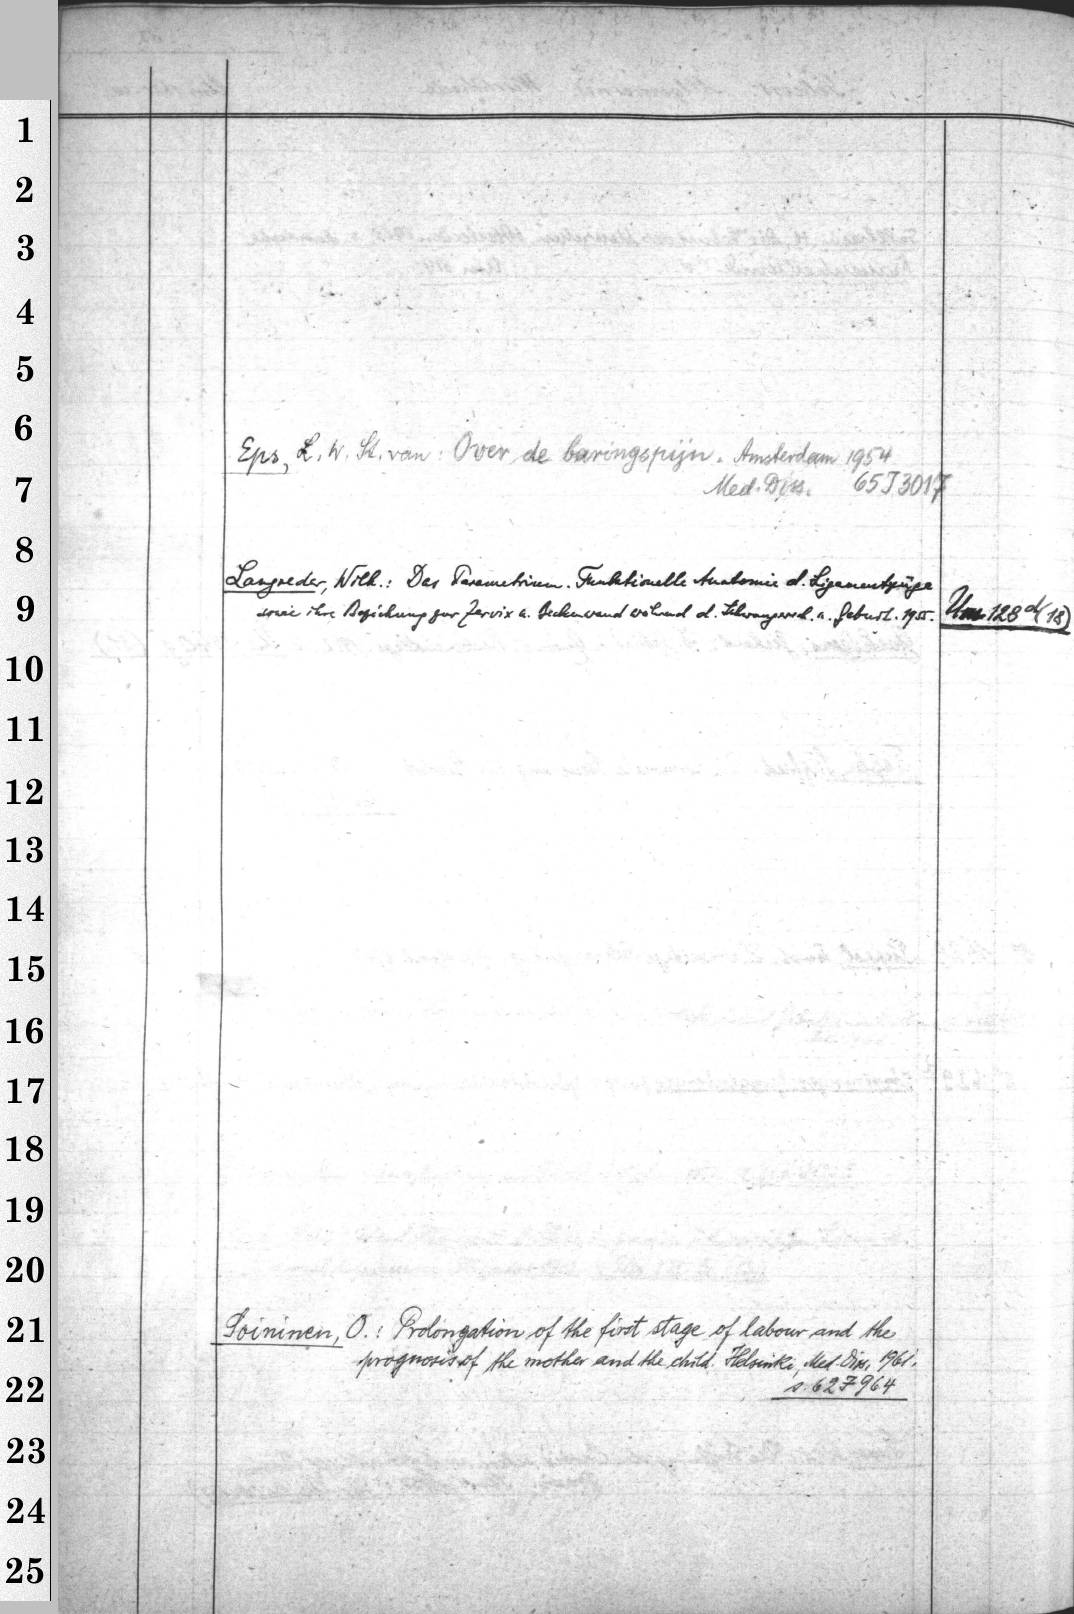 1
2
3
4
5
6
Eps, L. W. St. van : Over de baringspijn. Amsterdam 1954
7
Med. Diss. 65 J 3017
8
Langreder, Wilh.: Das Parametrium. Funktionelle Anatomie d. Ligamentzüge
9
sowie ihre Beziehung zur Zervix u. Beckenwand während d. Schwangersch. u. Geburt. 1955. Um 128 d (18)
10
11
12
13
14
15
16
17
18
19
20
21
Soininen, O.: Prolongation of the first stage of labour and the
prognosis of the mother and the child. Helsinki, Med. Diss. 1961.
22
s. 627964
23
24
25